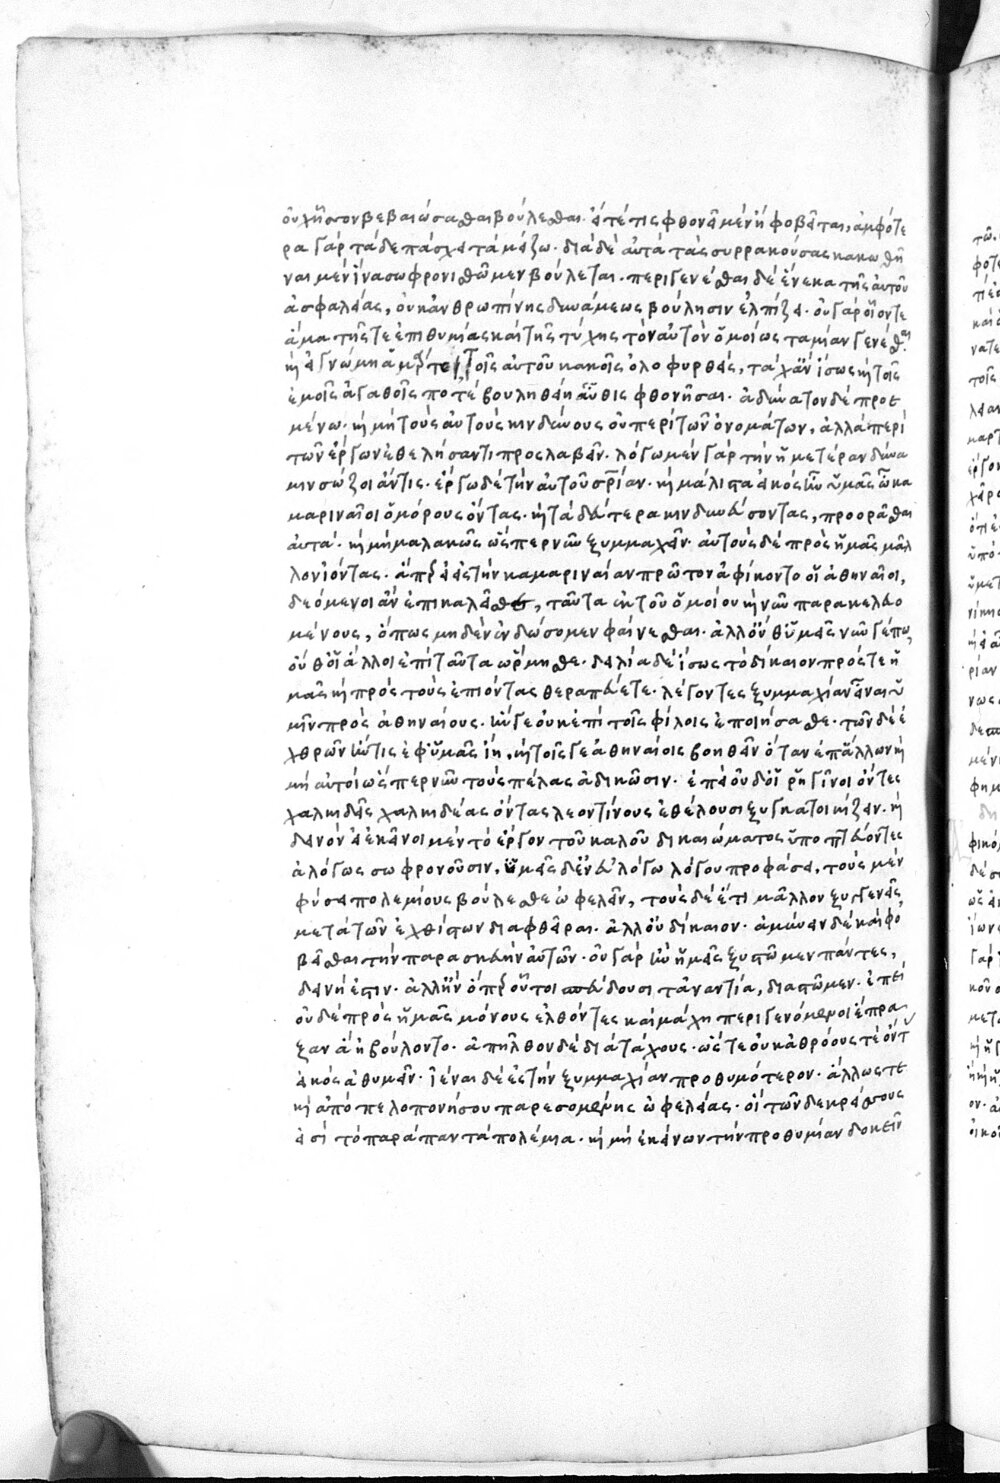 οὐχ ἧσσον βεβαιώσασθαι βούλεσθαι· εἴ τέ τις φθονεῖ μὲν ἢ φοβεῖται, ἀμφότε
ρα γὰρ τάδε πάσχει τὰ μείζω· διὰ δὲ αὐτὰ τὰς συρρακούσας κακωθῆ
ναι μὲν ἵνα σωφρονισθῶμεν βούλεται· περιγενέσθαι δὲ ἕνεκα τῆς αὐτοῦ
ἀσφαλείας, οὐκ ἀνθρωπίνης δυνάμεως βούλησιν ἐλπίζει· οὐ γὰρ οἷόν τε
ἅμα τῆς τε ἐπιθυμίας καὶ τῆς τύχης τὸν αὐτὸν ὁμοίως ταμίαν γενέσθαι
καὶ εἰ γνώμῃ ἁμάρτοι, τοῖς αὐτοῦ κακοῖς ὀλοφυρθείς, τάχ' ἂν ἴσως καὶ τοῖς
ἐμοῖς ἀγαθοῖς ποτὲ βουληθείη αὖθις φθονῆσαι· ἀδύνατον δὲ προε
μένω· καὶ μὴ τοὺς αὐτοὺς κινδύνους οὐ περὶ τῶν ὀνομάτων, ἀλλὰ περὶ
τῶν ἔργων ἐθελήσαντι προσλαβεῖν· λόγω μὲν γὰρ τὴν ἡμετέραν δύνα
μιν σώζοι ἄν τις· ἔργω δὲ τὴν αὐτοῦ σωτηρίαν· καὶ μάλιστα εἰκὸς ἦν ὑμᾶς ὦ κα
μαριναῖοι ὁμόρους ὄντας· καὶ τὰ δεύτερα κινδυνεύσοντας, προορᾶσθαι
αὐτά· καὶ μὴ μαλακῶς ὥσπερ νῦν ξυμμαχεῖν· αὐτοὺς δὲ πρὸς ἡμᾶς μᾶλ
λον ἰόντας· ἅπερ εἰ ἐς τὴν καμαριναίαν πρῶτον ἀφίκοντο οἱ ἀθηναῖοι,
δεόμενοι ἂν ἐπικαλεῖσθε, ταῦτα ἐκ τοῦ ὁμοίου καὶ νῦν παρακελευο
μένους, ὅπως μηδὲν ἐνδώσομεν φαίνεσθαι· ἀλλ' οὔθ' ὑμεῖς νῦν γέ πω
οὔθ' οἱ ἄλλοι ἐπὶ ταῦτα ὥρμησθε· δειλία δὲ ἴσως τὸ δίκαιον πρός τε ἡ
μᾶς καὶ πρὸς τοὺς ἐπιόντας θεραπεύετε· λέγοντες ξυμμαχίαν εἶναι ὑ
μῖν πρὸς ἀθηναίους· ἥν γε οὐκ ἐπὶ τοῖς φίλοις ἐποιήσασθε· τῶν δὲ ἐ
χθρῶν ἤν τις ἐφ' ὑμᾶς ἴη, καὶ τοῖς γε ἀθηναίοις βοηθεῖν ὅταν ἐπ' ἄλλων καὶ
μὴ αὐτοὶ ὥσπερ νῦν τοὺς πέλας ἀδικῶσιν· ἐπεὶ οὐδ' οἱ ῥηγῖνοι ὄντες
χαλκιδεῖς χαλκιδέας ὄντας λεοντίνους ἐθέλουσι ξυγκατοικίζειν· καὶ
δεινὸν εἰ ἐκεῖνοι μὲν τὸ ἔργον τοῦ καλοῦ δικαιώματος ὑποπτεύοντες
ἀλόγως σωφρονοῦσιν, ὑμεῖς δ' εὐλόγω λόγου προφάσει, τοὺς μὲν
φύσει πολεμίους βούλεσθε ὠφελεῖν, τοὺς δὲ ἔτι μᾶλλον ξυγγενεῖς
μετὰ τῶν ἐχθίστων διαφθεῖραι· ἀλλ' οὐ δίκαιον· ἀμύνειν δὲ καὶ φο
βεῖσθαι τὴν παρασκευὴν αὐτῶν· οὐ γὰρ ἢν ἡμεῖς ξυστῶμεν πάντες,
δεινή ἐστιν· ἀλλ' ἢν ὅπερ οὗτοι σπεύδουσι τἀναντία, διαστῶμεν· ἐπεὶ
οὐδὲ πρὸς ἡμᾶς μόνους ἐλθόντες καὶ μάχῃ περιγενόμενοι ἔπρα
ξαν ἃ ἠβούλοντο· ἀπῆλθον δὲ διὰ τάχους· ὥστε οὐκ ἀθρόους τὲ ὄντας
εἰκὸς ἀθυμεῖν· ἰέναι δὲ ἐς τὴν ξυμμαχίαν προθυμότερον· ἄλλως τε
καὶ ἀπὸ πελοπονήσου παρεσομένης ὠφελείας· οἳ τῶνδε κρείσσους
εἰσὶ τὸ παράπαν τὰ πολέμια· καὶ μὴ ἐκείνων τὴν προθυμίαν δοκεῖν